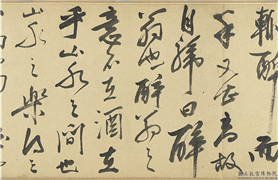 輒醉而
年又最高故
自號曰醉
翁也醉翁之
意不在酒在
乎山水之間也
山水之樂得之